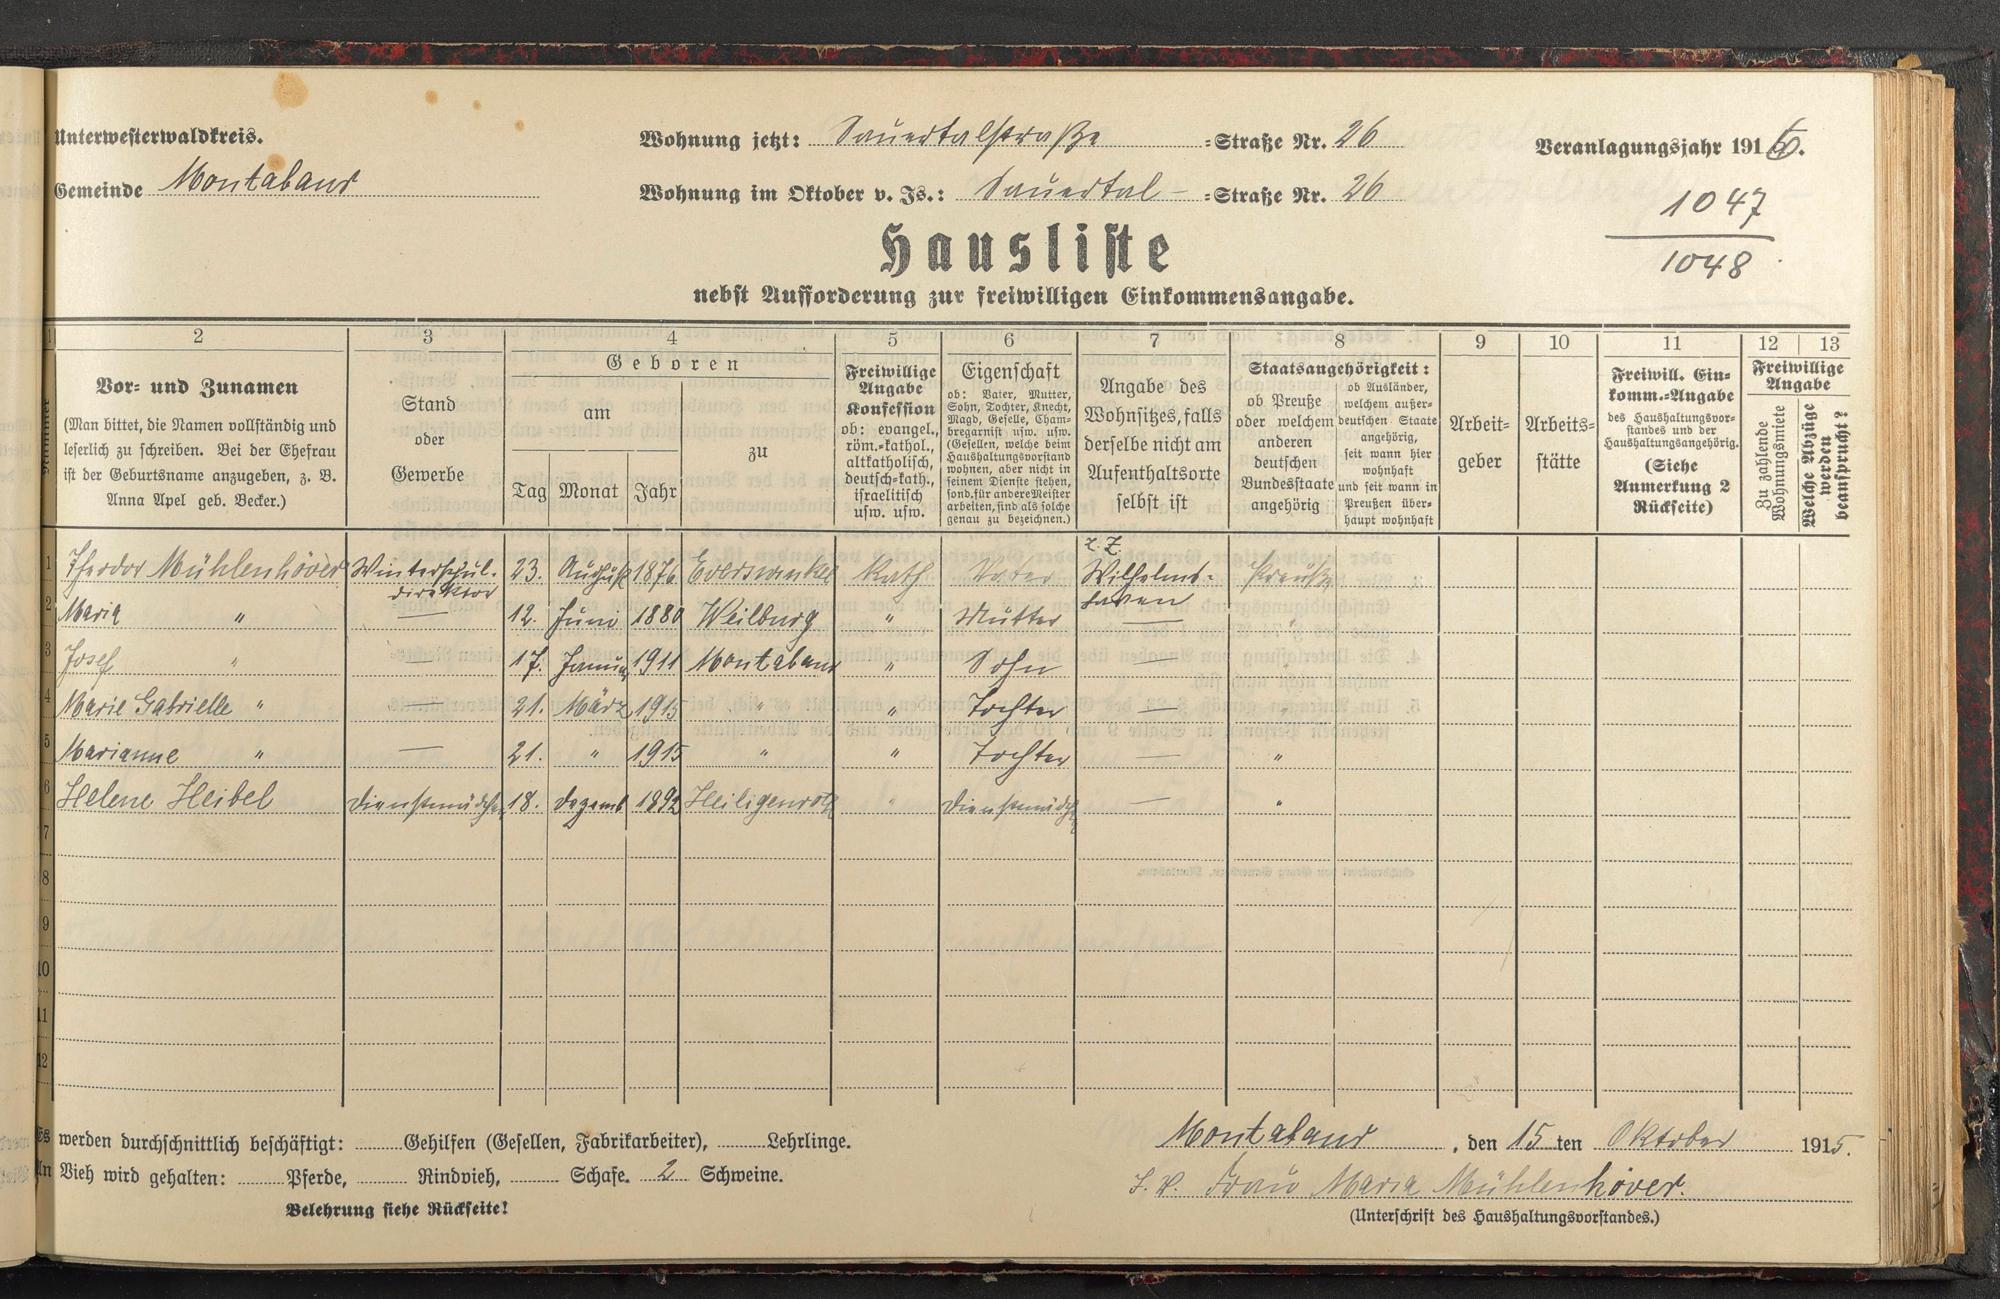 Unterwesterwaldkreis.
Gemeinde Montabaur
Wohnung jetzt: Sauertalstraße =Straße Nr. 26
Wohnung im Oktober v. Js.: Sauertal- =Straße Nr. 26
Veranlagungsjahr 1916.
1047
1048
Hausliste
nebst Aufforderung zur freiwilligen Einkommensangabe.
1 2 3 4 5 6 7 8 9 10 11 12 13
Nummer
Vor= und Zunamen
(Man bittet, die Namen vollständig und
leserlich zu schreiben. Bei der Ehefrau
ist der Geburtsname anzugeben, z. B.
Anna Apel geb. Becker.)
Stand
oder
Gewerbe
Geboren
am
Tag Monat Jahr
zu
Freiwillige
Angabe
Konfession
ob: evangel.,
röm.=kathol.,
altkatholisch,
deutsch=kath.,
israelitisch
usw. usw.
Eigenschaft
ob: Vater, Mutter,
Sohn, Tochter, Knecht,
Magd, Geselle, Cham=
bregarnist usw. usw.
(Gesellen, welche beim
Haushaltungsvorstand
wohnen, aber nicht in
seinem Dienste stehen,
sond. für andere Meister
arbeiten, sind als solche
genau zu bezeichnen.)
Angabe des
Wohnsitzes, falls
derselbe nicht am
Aufenthaltsorte
selbst ist
Staatsangehörigkeit:
ob Preuße
oder welchem
anderen
deutschen
Bundesstaate
angehörig
ob Ausländer,
welchem außer=
deutschen Staate
angehörig,
seit wann hier
wohnhaft
und seit wann in
Preußen über=
haupt wohnhaft
Arbeit=
geber
Arbeits=
stätte
Freiwill. Ein=
komm.=Angabe
des Haushaltungsvor=
standes und der
Haushaltungsangehörig.
(Siehe
Anmerkung 2
Rückseite)
Freiwillige
Angabe
Zu zahlende
Wohnungsmiete
Welche Abzüge
werden
beansprucht?
1 Theodor Mühlenhöver Winterschul- direktor 23. August 1876 Everswinkel Kath Vater z. Z. Wilhelms- haven Preuße
2 Maria " — 12. Juni 1880 Weilburg " Mutter — "
3 Josef " — 17. Januar 1911 Montabaur " Sohn — "
4 Marie Gabrielle " — 21. März 1915 " " Tochter — "
5 Marianne " — 21. " 1915 " " Tochter — "
6 Helene Heibel Dienstmädchen 18. Dezemb 1892 Heiligenroth " Dienstmädch — "
7
8
9
10
11
12
Es werden durchschnittlich beschäftigt: Gehilfen (Gesellen, Fabrikarbeiter), Lehrlinge.
An Vieh wird gehalten: Pferde, Rindvieh, Schafe. 2 Schweine.
Belehrung siehe Rückseite!
Montabaur, den 15ten Oktober 1915.
I. V. Frau Maria Mühlenhöver.
(Unterschrift des Haushaltungsvorstandes.)